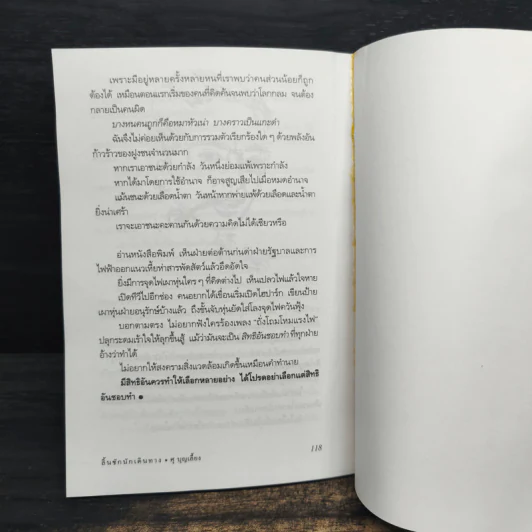 เพราะมีอยู่หลายครั้งหลายหนที่เราพบว่าคนส่วนน้อยก็ถูก
ต้องได้ เหมือนตอนแรกเริ่มของคนที่คิดค้นจนพบว่าโลกกลม จนต้อง
กลายเป็นคนผิด
บางหนคนถูกก็คือหมาหัวเน่า บางคราวเป็นแกะดำ
ฉันจึงไม่ค่อยเห็นด้วยกับการรวมตัวเรียกร้องใด ๆ ด้วยพลังอัน
ก้าวร้าวของฝูงชนจำนวนมาก
หากเราเอาชนะด้วยกำลัง วันหนึ่งย่อมแพ้เพราะกำลัง
หากได้มาโดยการใช้อำนาจ ก็อาจสูญเสียไปเมื่อหมดอำนาจ
แม้นชนะด้วยเลือดน้ำตา วันหน้าหากพ่ายแพ้ด้วยเลือดและน้ำตา
ยิ่งน่าเศร้า
เราจะเอาชนะคะคานกันด้วยความคิดไม่ได้เชียวหรือ
อ่านหนังสือพิมพ์ เห็นฝ่ายต่อต้านก่นด่าฝ่ายรัฐบาลและการ
ไฟฟ้าออกแนวเหี้ยห่าสารพัดสัตว์แล้วอึดอัดใจ
ยิ่งมีการจุดไฟเผาหุ่นใคร ๆ ที่คิดต่างไป เห็นเปลวไฟแล้วใจหาย
เปิดทีวีไปอีกช่อง คนอยากได้เขื่อนเริ่มเปิดไฮปาร์ก เขียนป้าย
เผาหุ่นฝ่ายอนุรักษ์บ้างแล้ว ถึงขั้นจับหุ่นยัดใส่โลงจุดไฟควันฟุ้ง
บอกตามตรง ไม่อยากฟังใครร้องเพลง “ถั่งโถมโหมแรงไฟ”
ปลุกระดมเร้าใจให้ลุกขึ้นสู้ แม้ว่ามันจะเป็น สิทธิอันชอบทำ ที่ทุกฝ่าย
อ้างว่าทำได้
ไม่อยากให้สงครามสิ่งแวดล้อมเกิดขึ้นเหมือนคำทำนาย
มีสิทธิอันควรทำให้เลือกหลายอย่าง ได้โปรดอย่าเลือกแต่สิทธิ
อันชอบทำ
118
ลิ้นชักนักเดินทาง • ศุ บุญเลี้ยง